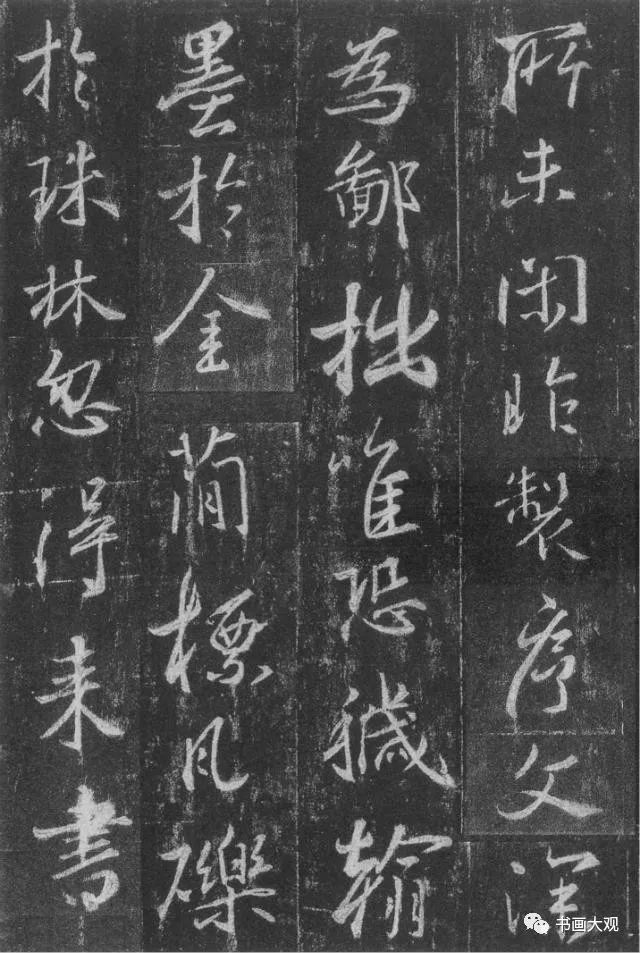 所未閑昨製序文深
為鄙拙唯恐穢翰
墨於金簡標瓦礫
於珠林忽得来書
书画大观